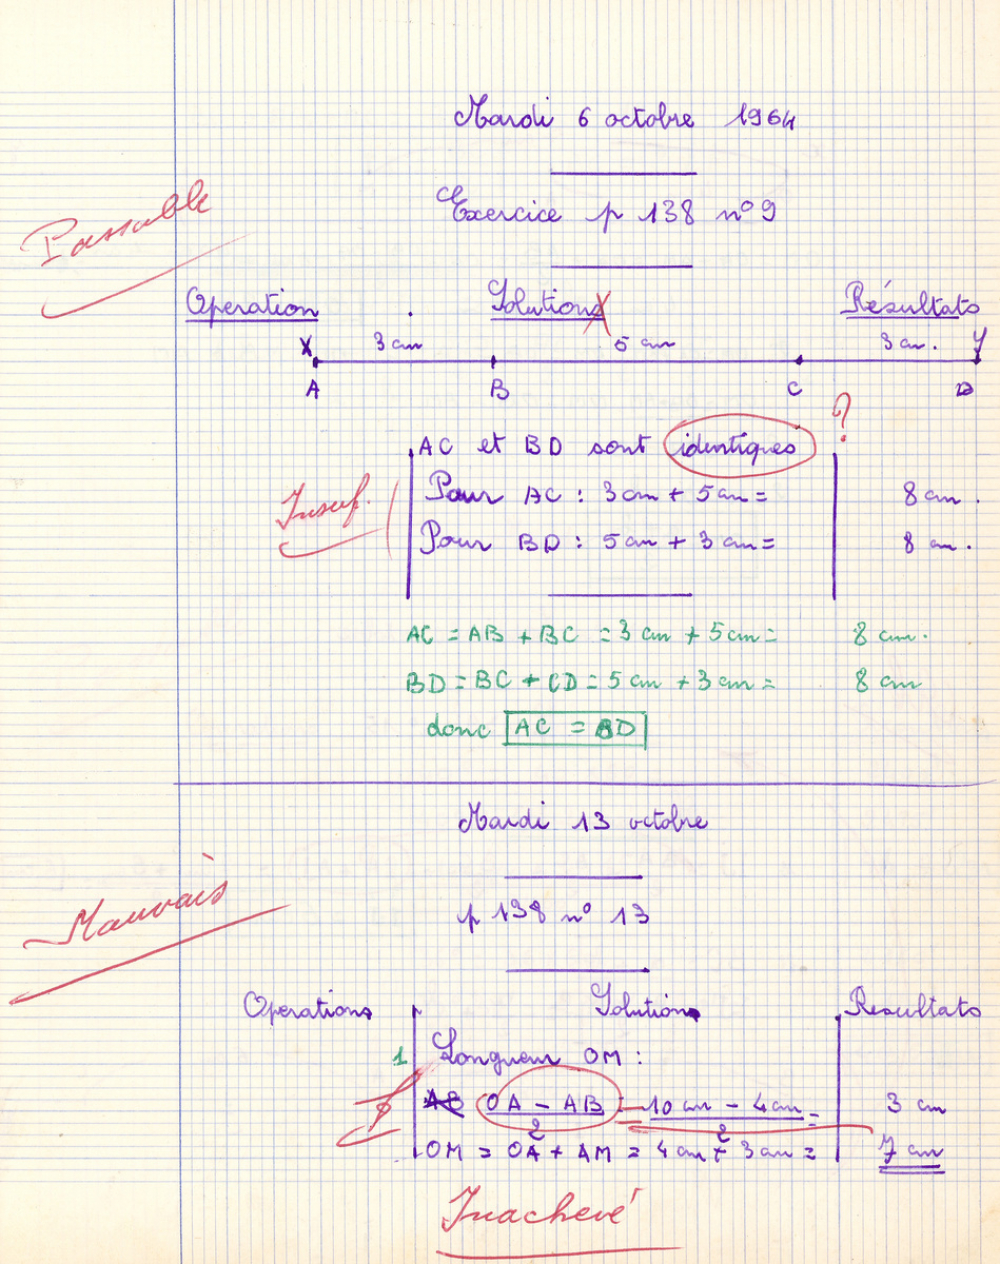 Mardi 6 octobre 1964
Passable
Exercice p 138 n° 9
Operation Solutions Résultats
X 3 cm 5 cm 3 cm. Y
A B C D
?
AC et BD sont identiques
Insuf.
Pour AC : 3 cm + 5 cm = 8 cm.
Pour BD : 5 cm + 3 cm = 8 cm.
AC = AB + BC = 3 cm + 5 cm = 8 cm.
BD = BC + CD = 5 cm + 3 cm = 8 cm
donc AC = BD
Mardi 13 octobre
Mauvais
p 138 n° 13
Operations Solutions Resultats
1 Longueur OM :
AB OA - AB = 10 cm - 4 cm = 3 cm
2 2
OM = OA + AM = 4 cm + 3 cm = 7 cm
Inachevé